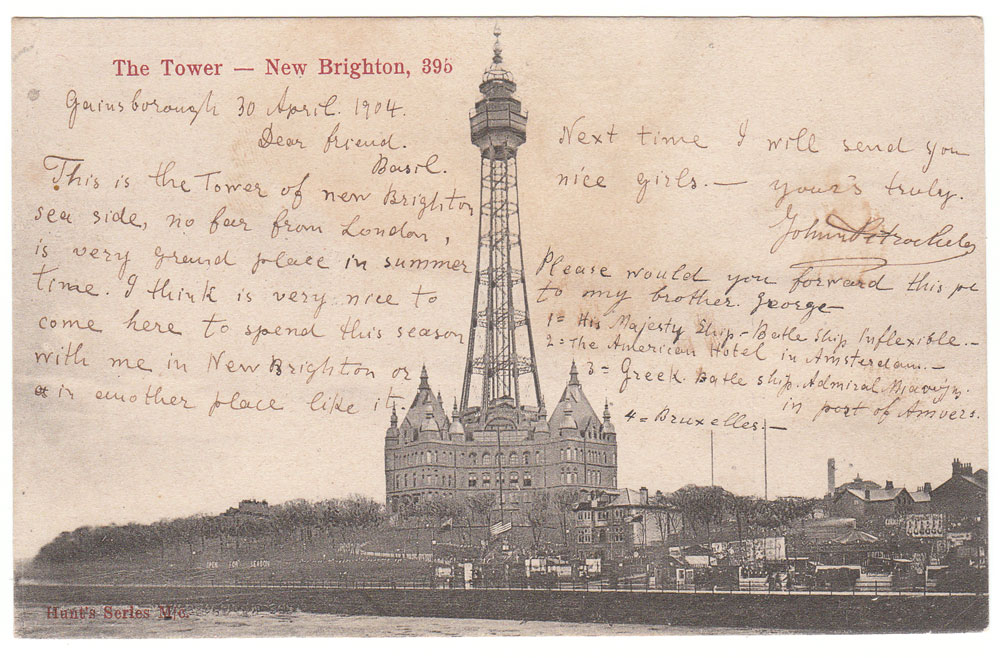 The Tower — New Brighton, 395
Gainsborough 30 April. 1904.
Dear friend.
Basil.
This is the Tower of new Brighton
sea side, no far from London,
is very grand place in summer
time. I think is very nice to
come here to spend this season
with me in New Brighton or
in another place like it.
Next time I will send you
nice girls. — your's truly.
John
Please would you forward this pc
to my brother. George
1= His Majesty Ship - Batle Ship Inflexible. —
2= The American Hotel in Amsterdam. —
3= Greek Batle ship. Admiral
in port of Anvers.
4= Bruxelles —
OPEN FOR SEASON
Hunt's Series M/c.